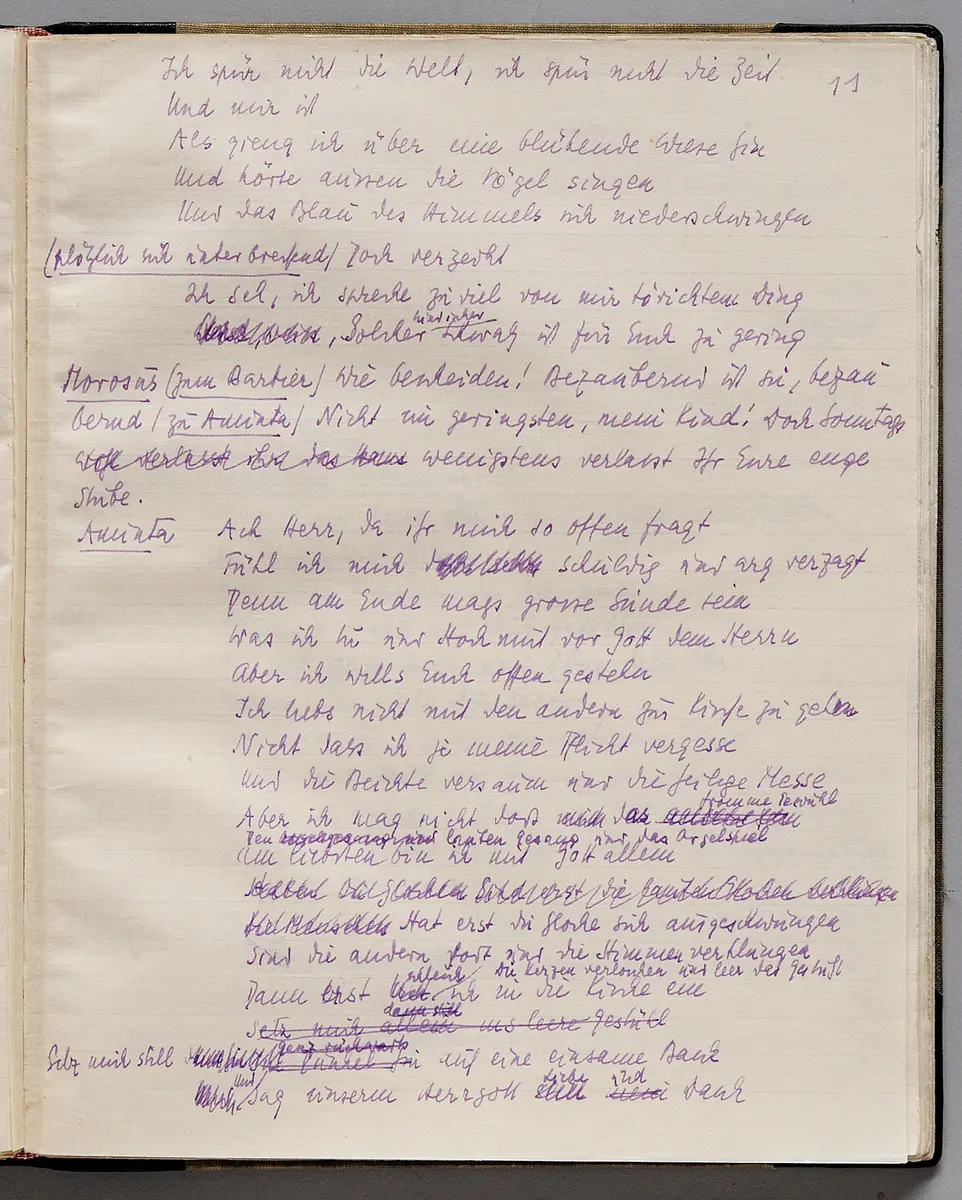 11
Ich spür nicht die Welt, ich spür nicht die Zeit.
Und mir ist
Als gieng ich über eine blühende Wiese hin
Und hörte aussen die Vögel singen
Und das Blau des Himmels sich niederschwingen
(plötzlich sich unterbrechend) Doch verzeiht
Ich seh, ich spreche zu viel von mir törichtem Ding
kindischer
Solcher Schwatz ist für Euch zu gering
Morosus (zum Barbier) Wie bescheiden! Bezaubernd ist sie, bezau
bernd (zu Aminta) Nicht im geringsten, mein Kind! Doch Sonntags
wohl verlasst ihr das Haus wenigstens verlasst Ihr Eure enge
Stube.
Aminta Ach Herr, da ihr mich so offen fragt
Fühl ich mich schuldig und arg verzagt
Denn am Ende mags grosse Sünde sein
Was ich tu und Hochmut vor Gott dem Herrn
Aber ich wills Euch offen gestehn
Ich liebs nicht mit den andern zur Kirche zu gehen
Nicht dass ich je meine Pflicht vergesse
Und die Beichte versäum und die heilige Messe
fromme Gewühl
Aber ich mag nicht dort das
Den lauten Gesang und das Orgelspiel
Am liebsten bin ich mit Gott allein
Sind erst die lauten Glocken verklungen
Hat erst die Glocke sich ausgeschwungen
Sind die andern fort und die Stimmen verklungen
Die Kerzen verloschen und leer das Gestühl
schleich
Dann erst ich in die Kirche ein
dann still
Setz mich allein ins leere Gestühl
ganz rückwärts
Setz mich still im Dunkel hin auf eine einsame Bank
und
Sag unserm Herrgott Lobe und Dank